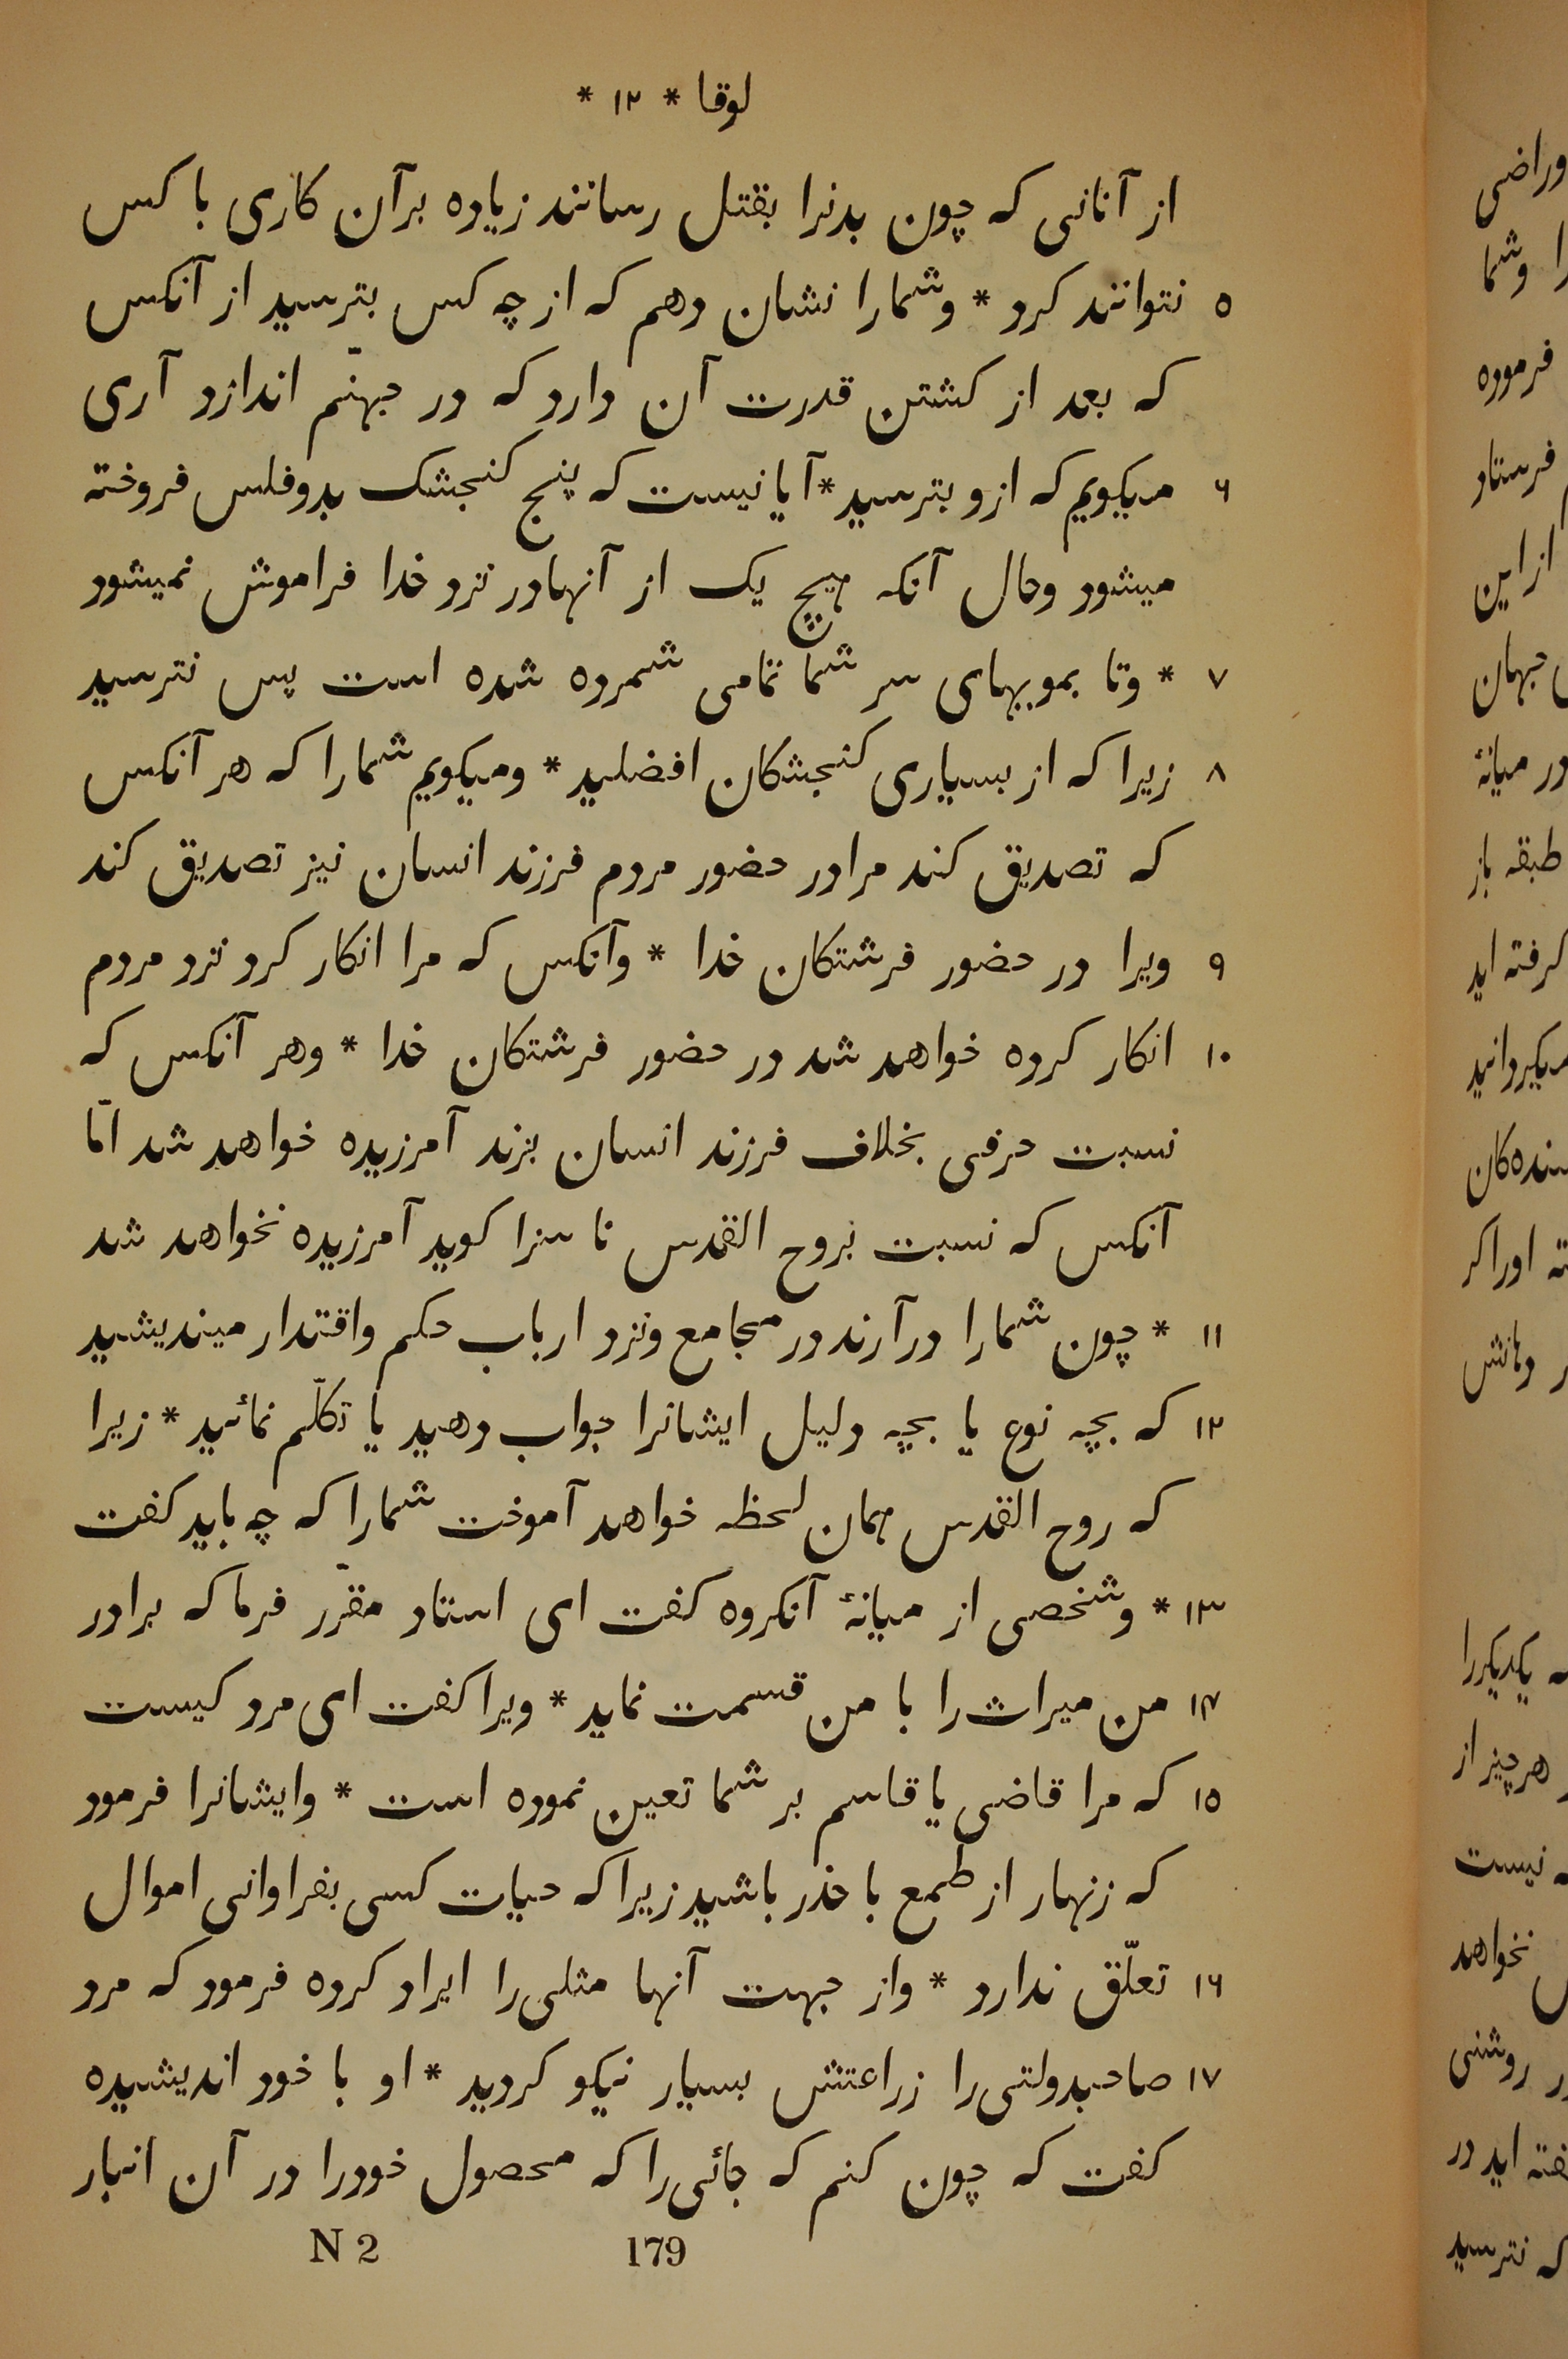 لوقا * ۱۲ *
از آنانی که چون بدنرا بقتل رسانند زیاده برآن کاری با کس
۵ نتوانند کرد * وشمارا نشان دهم که از چه کس بترسید از آنکس
که بعد از کشتن قدرت آن دارد که در جهنّم اندازد آری
۶ میکویم که ازو بترسید * آیا نیست که پنج کنجشک بدوفلس فروخته
میشود وحال آنکه هیچ یک از آنهادر نزد خدا فراموش نمیشود
۷ * وتا بمویهای سر شما تمامی شمرده شده است پس نترسید
۸ زیرا که از بسیاری کنجشکان افضلید * ومیکویم شمارا که هر آنکس
که تصدیق کند مرادر حضور مردم فرزند انسان نیز تصدیق کند
۹ ویرا در حضور فرشتکان خدا * وآنکس که مرا انکار کرد نزد مردم
۱۰ انکار کرده خواهد شد در حضور فرشتکان خدا * وهر آنکس که
نسبت حرفی بخلاف فرزند انسان بزند آمرزیده خواهد شد امّا
آنکس که نسبت بروح القدس نا سزا کوید آمرزیده نخواهد شد
۱۱ * چون شمارا درآرند در مجامع ونزد ارباب حکم واقتدار میندیشید
۱۲ که بچه نوع یا بچه دلیل ایشانرا جواب دهید یا تکلّم نمائید * زیرا
که روح القدس همان لحظه خواهد آموخت شمارا که چه باید کفت
۱۳ * وشخصی از میانهٔ آنکروه کفت ای استاد مقرّر فرما که برادر
۱۴ من میراث را با من قسمت نماید * ویرا کفت ای مرد کیست
۱۵ که مرا قاضی یا قاسم بر شما تعین نموده است * وایشانرا فرمود
که زنهار از طمع با حذر باشید زیرا که حیات کسی بفراوانی اموال
۱۶ تعلّق ندارد * واز جهت آنها مثلی را ایراد کرده فرمود که مرد
۱۷ صاحبدولتی را زراعتش بسیار نیکو کردید * او با خود اندیشیده
کفت که چون کنم که جائی را که محصول خودرا در آن انبار
N 2 179
وراضی
را وشما
فرموده
فرستاد
از این
جهان
در میانهٔ
طبقه باز
کرفته اید
میکیردانید
اوراکر
دهانش
یکدیکررا
هرچیز از
نیست
نخواهد
روشنی
اید در
که نترسید